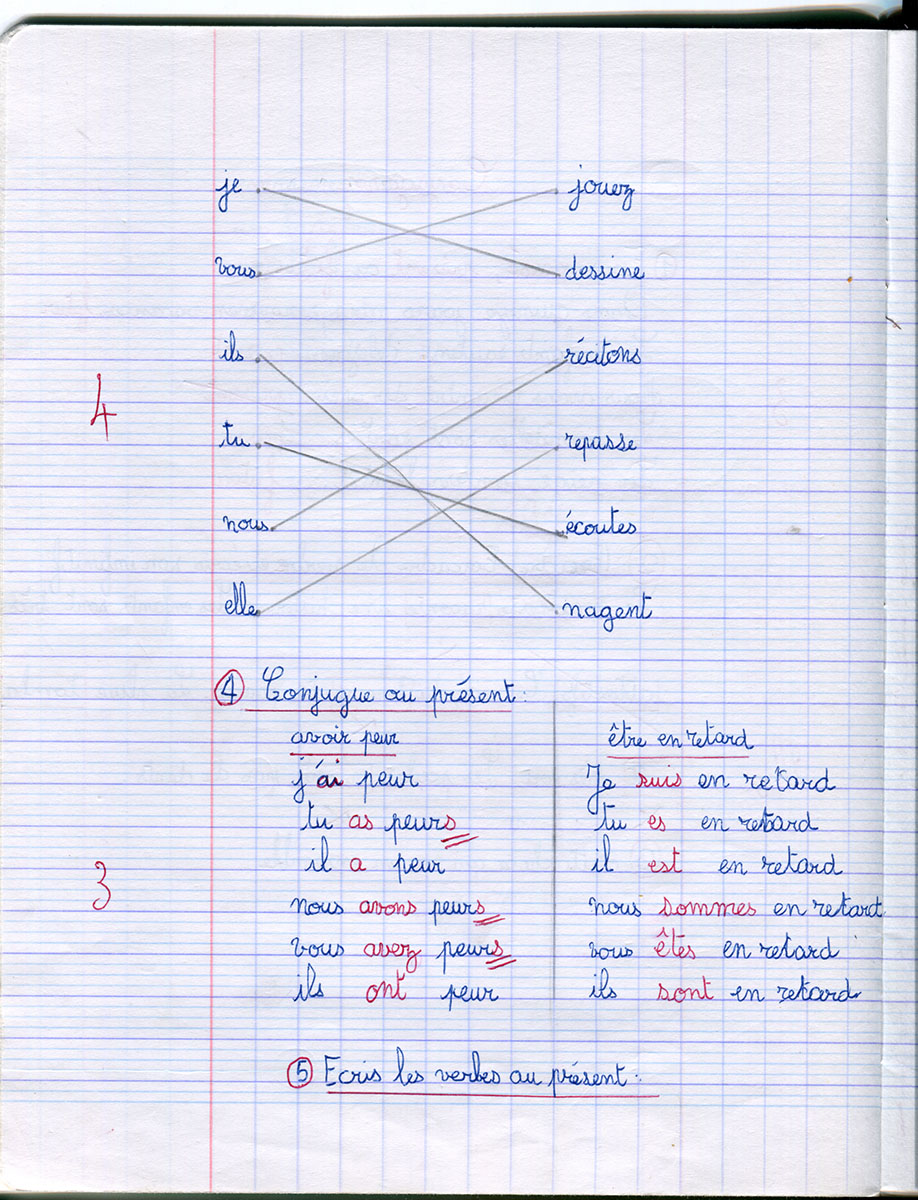 je jouez
vous dessine
ils récitons
4
tu repasse
nous écoutes
elle nagent
④ Conjugue au présent :
avoir peur être en retard
j'ai peur Je suis en retard
tu as peurs tu es en retard
il a peur il est en retard
3
nous avons peurs nous sommes en retard
vous avez peurs vous êtes en retard
ils ont peur ils sont en retard
⑤ Ecris les verbes au présent :